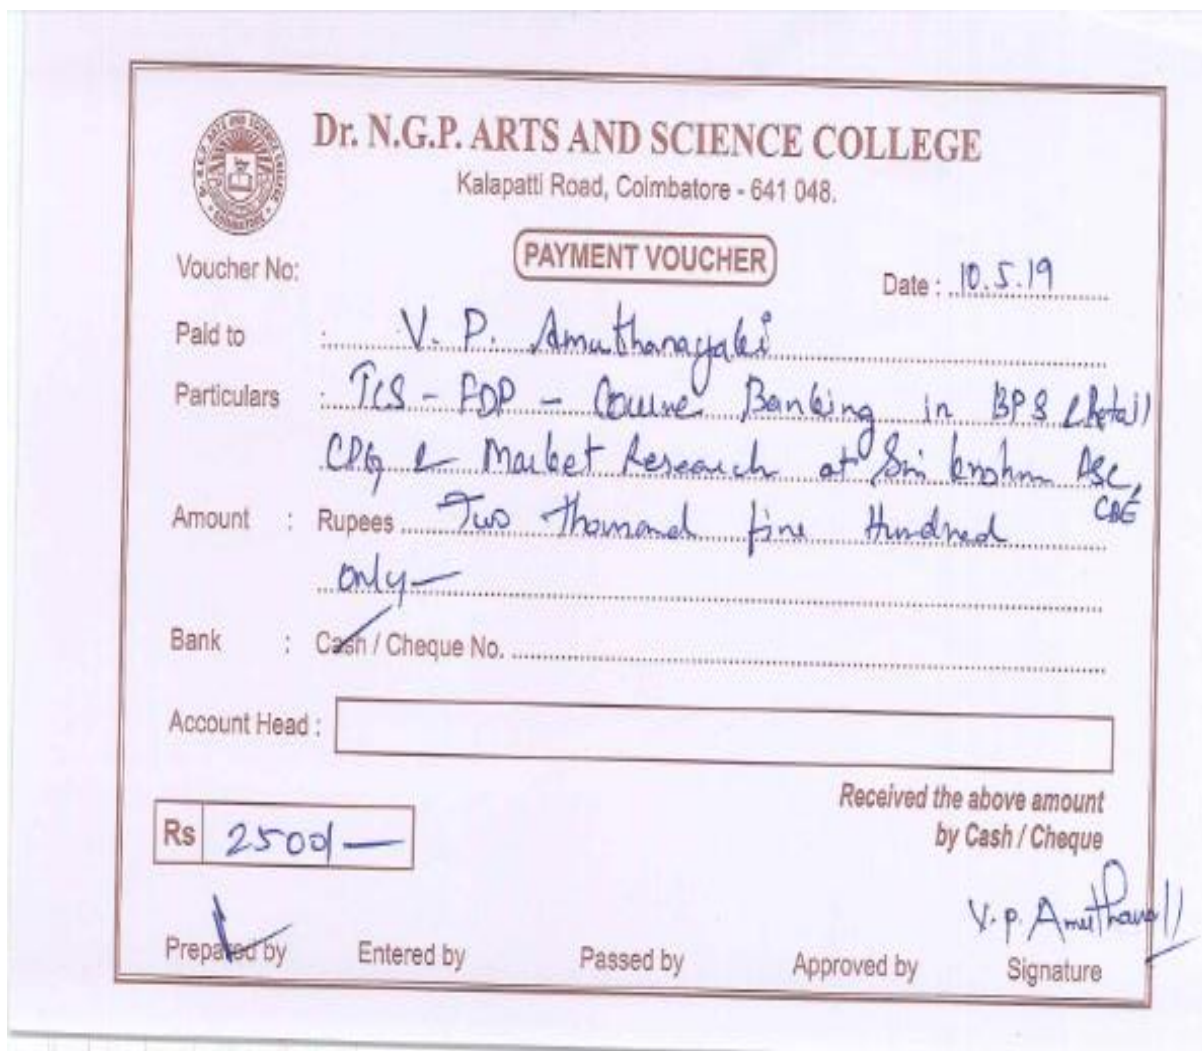 Dr. N.G.P. ARTS AND SCIENCE COLLEGE
Kalapatti Road, Coimbatore - 641 048.
PAYMENT VOUCHER
Voucher No:
Date : 10.5.19
Paid to : V. P. Amuthanayaki
Particulars : TCS - FDP - Course Banking in BPS (Retail)
CPG & Market Research at Sri Krishna ASC,
CBE
Amount : Rupees Two Thousand five Hundred
only—
Bank : Cash / Cheque No.
Account Head :
Received the above amount
by Cash / Cheque
Rs 2500/—
V. P.
Prepared by Entered by Passed by Approved by Signature